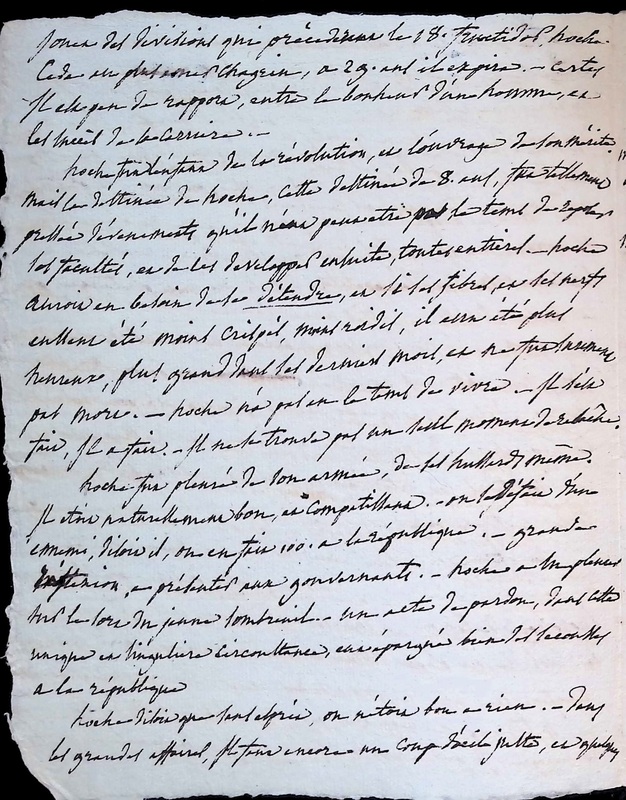 jouer des divisions qui précédèrent le 18. fructidor, hoche
Cede au plus cruel chagrin, a 29. ans il expira. - certes
Il est peu de rapport, entre le bonheur d'un homme, et
les succès de la carrière. -
hoche fut l'enfant de la révolution, et l'ouvrage de son mérite
mais la destinée de hoche, cette destinée de 8. ans, fut tellement
pressée d'évenements qu'il n'eut peut etre pas le tems de
ses facultés, et de les developper ensuite, toutes entieres. - hoche
auroit eu besoin de se détendre, et si ses fibres, et ses nerfs
eussent été moins crispés, moins roidis, il eut été plus
heureux, plus grand dans ses derniers mois, et ne fut surement
pas mort. - hoche n'a pas eu le tems de vivre - Il s'est
fait, Il a fait. - Il ne se trouve pas un seul moment de relâche.
hoche fut pleuré de son armée, de ses hussards même.
Il etoit naturellement bon, et compatissant. - on se défait d'un
ennemi, disoit il, on en fait 100. a la république. - grande
réflexion, a présenter aux gouvernants. - hoche a pleurer
sur le sort du jeune Sombreuil. - un acte de pardon, dans cette
unique et singuliere circonstance, eut épargné bien des secousses
a la république
hoche disoit que sans esprit, on n'étoit bon a rien. - Dans
les grandes affaires, Il faut encore un coup d'oeil juste, et quelques